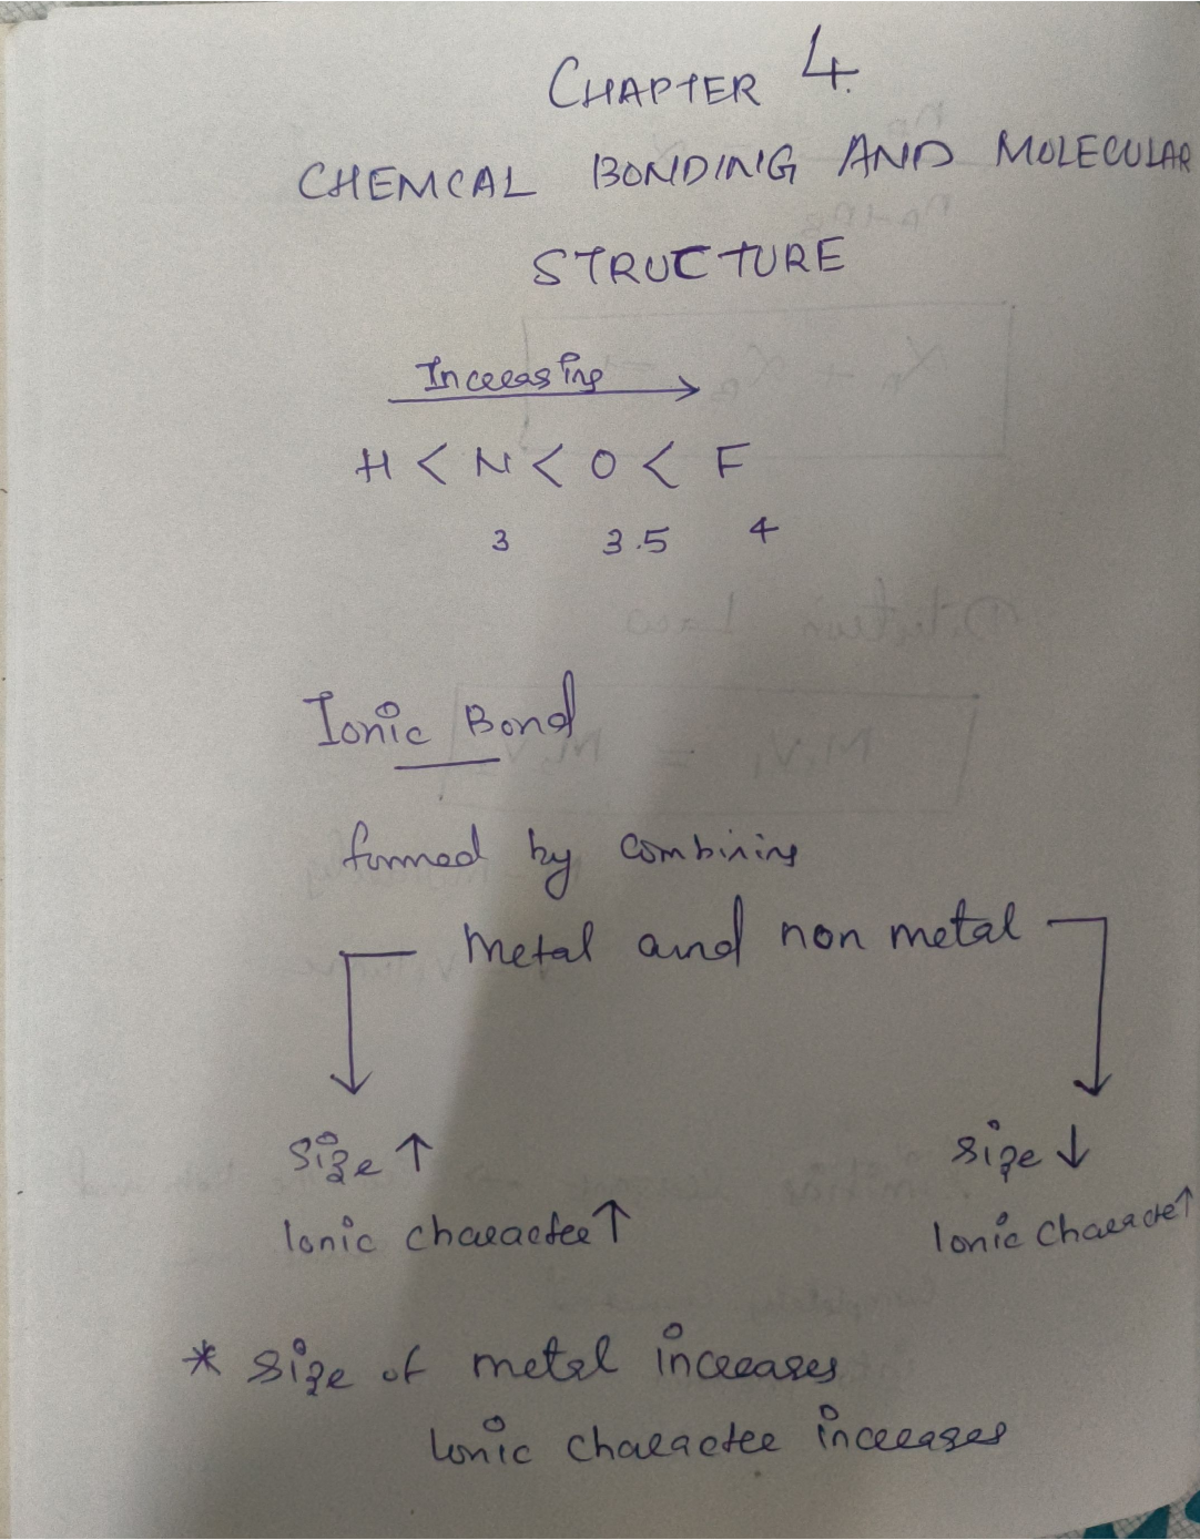 CHAPTER 4.
CHEMCAL BONDING AND MOLECULAR
STRUCTURE
Increasing
H < N < O < F
3 3.5 4
Ionic Bond
formed by combining
Metal and non metal
Size ↑ size ↓
Ionic character ↑ Ionic Characte ↑
* size of metal increases
Ionic character increases